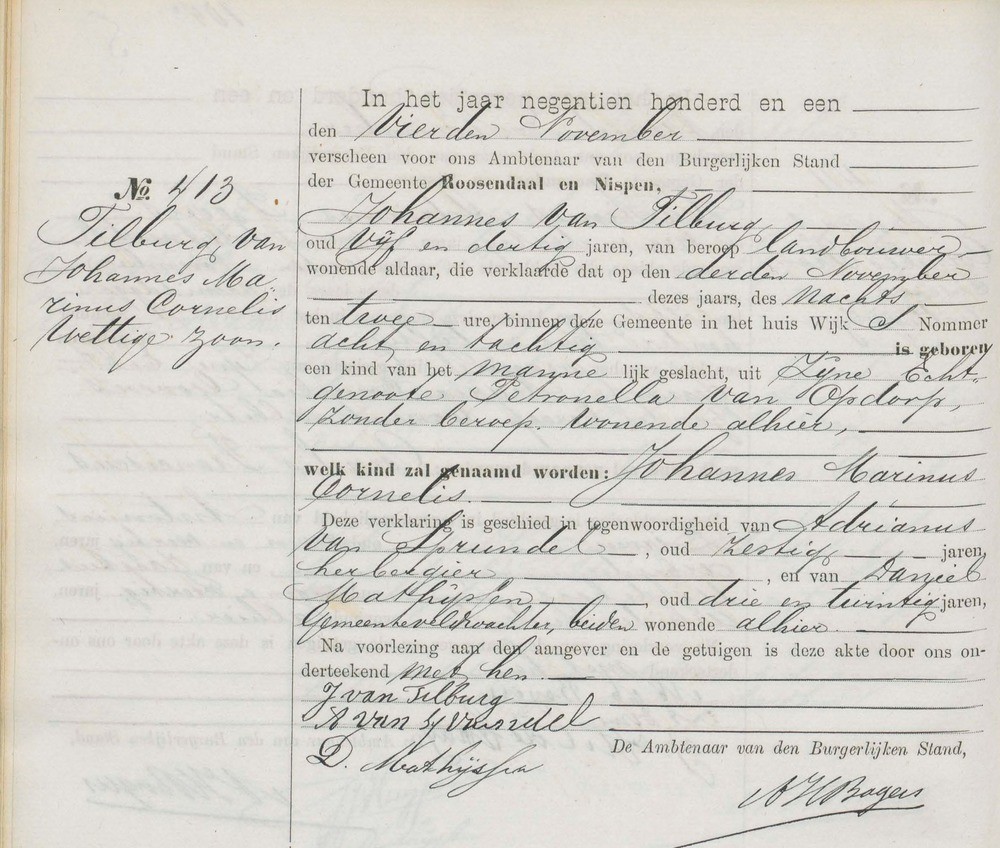 No. 413
Tilburg, van
Johannes Ma-
rinus Cornelis
Wettige zoon.
In het jaar negentien honderd en een
den Vierden November
verscheen voor ons Ambtenaar van den Burgerlijken Stand
der Gemeente Roosendaal en Nispen,
Johannes van Tilburg,
oud Vijf en dertig jaren, van beroep landbouwer
wonende aldaar, die verklaarde dat op den derden November
dezes jaars, des Nachts
ten twee ure, binnen deze Gemeente in het huis Wijk S Nommer
acht en tachtig is geboren
een kind van het manne lijk geslacht, uit Zijne Echt-
genoote Petronella van Opdorp,
zonder beroep. wonende alhier,
welk kind zal genaamd worden: Johannes Marinus
Cornelis
Deze verklaring is geschied in tegenwoordigheid van Adrianus
van Sprundel, oud zestig jaren,
herbergier, en van Daniel
Mathijssen, oud drie en twintig jaren,
Gemeenteveldwachter, beiden wonende alhier.
Na voorlezing aan den aangever en de getuigen is deze akte door ons on-
derteekend met hen.
J van Tilburg
A van Sprundel
De Ambtenaar van den Burgerlijken Stand,
D. Mathijssen